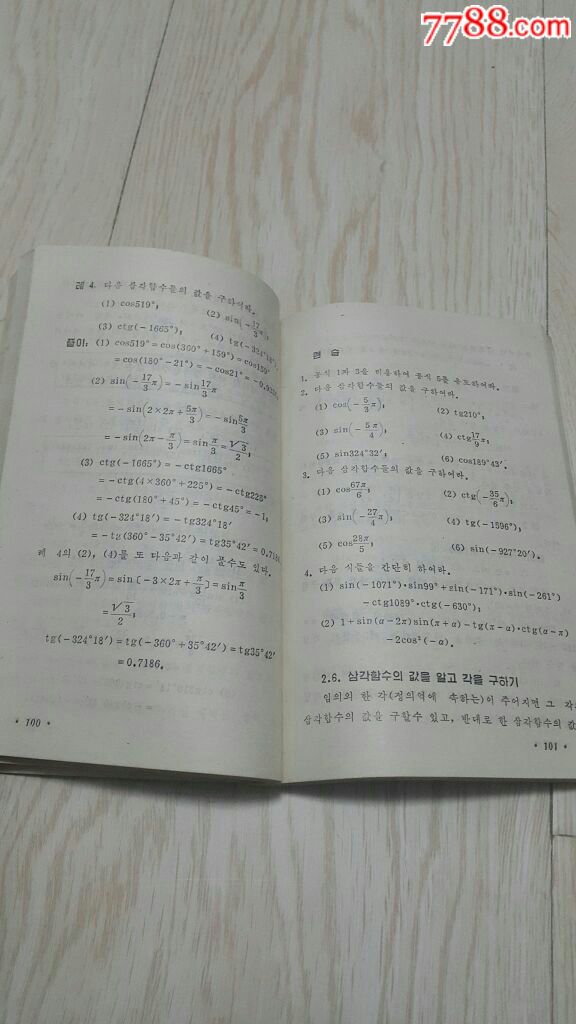 7788.com
례 4. 다음 삼각함수들의 값을 구하여라.
(1) cos519°; (2) sin(-17/3π);
(3) ctg(-1665°); (4) tg(-324°18′)
풀이: (1) cos519°=cos(360°+159°)=cos159°
=cos(180°-21°)=-cos21°=
(2) sin(-17/3π)=-sin17π/3
=-sin(2×2π+5π/3)=-sin5π/3
=-sin(2π-π/3)=sinπ/3=√3/2;
(3) ctg(-1665°)=-ctg1665°
=-ctg(4×360°+225°)=-ctg225°
=-ctg(180°+45°)=-ctg45°=-1;
(4) tg(-324°18′)=-tg324°18′
=-tg(360°-35°42′)=tg35°42′=
례 4의 (2), (4)를 또 다음과 같이 풀수도 있다.
sin(-17/3π)=sin[-3×2π+π/3]=sinπ/3
=√3/2;
tg(-324°18′)=tg(-360°+35°42′)=tg35°42′
=0.7186.
• 100 •
련 습
1. 공식 1과 3을 리용하여 공식 5를 유도하여라.
2. 다음 삼각함수들의 값을 구하여라.
(1) cos(-5/3π); (2) tg210°;
(3) sin(-5π/4); (4) ctg17/9π;
(5) sin324°32′; (6) cos189°43′.
3. 다음 삼각함수들의 값을 구하여라.
(1) cos67π/6; (2) ctg(-35/6π);
(3) sin(-27/4π); (4) tg(-1596°);
(5) cos28π/5; (6) sin(-927°20′).
4. 다음 식들을 간단히 하여라.
(1) sin(-1071°)·sin99°+sin(-171°)·sin(-261°)
-ctg1089°·ctg(-630°);
(2) 1+sin(α-2π)sin(π+α)-tg(π-α)·ctg(α-π)
-2cos²(-α).
2.6. 삼각함수의 값을 알고 각을 구하기
임의의 한 각(정의역에 속하는)이 주어지면 그 각의
삼각함수의 값을 구할수 있고, 반대로 한 삼각함수의 값
• 101 •